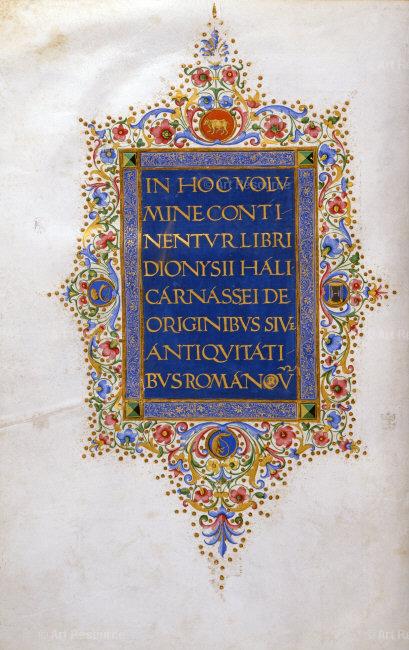 IN HOC VOLV
MINE CONTI
NENTVR LIBRI
DIONYSII HALI
CARNASSEI DE
ORIGINIBVS SIVE
ANTIQVITATI
BVS ROMANORV
© Art Resource
© Art Resource
Art Resource